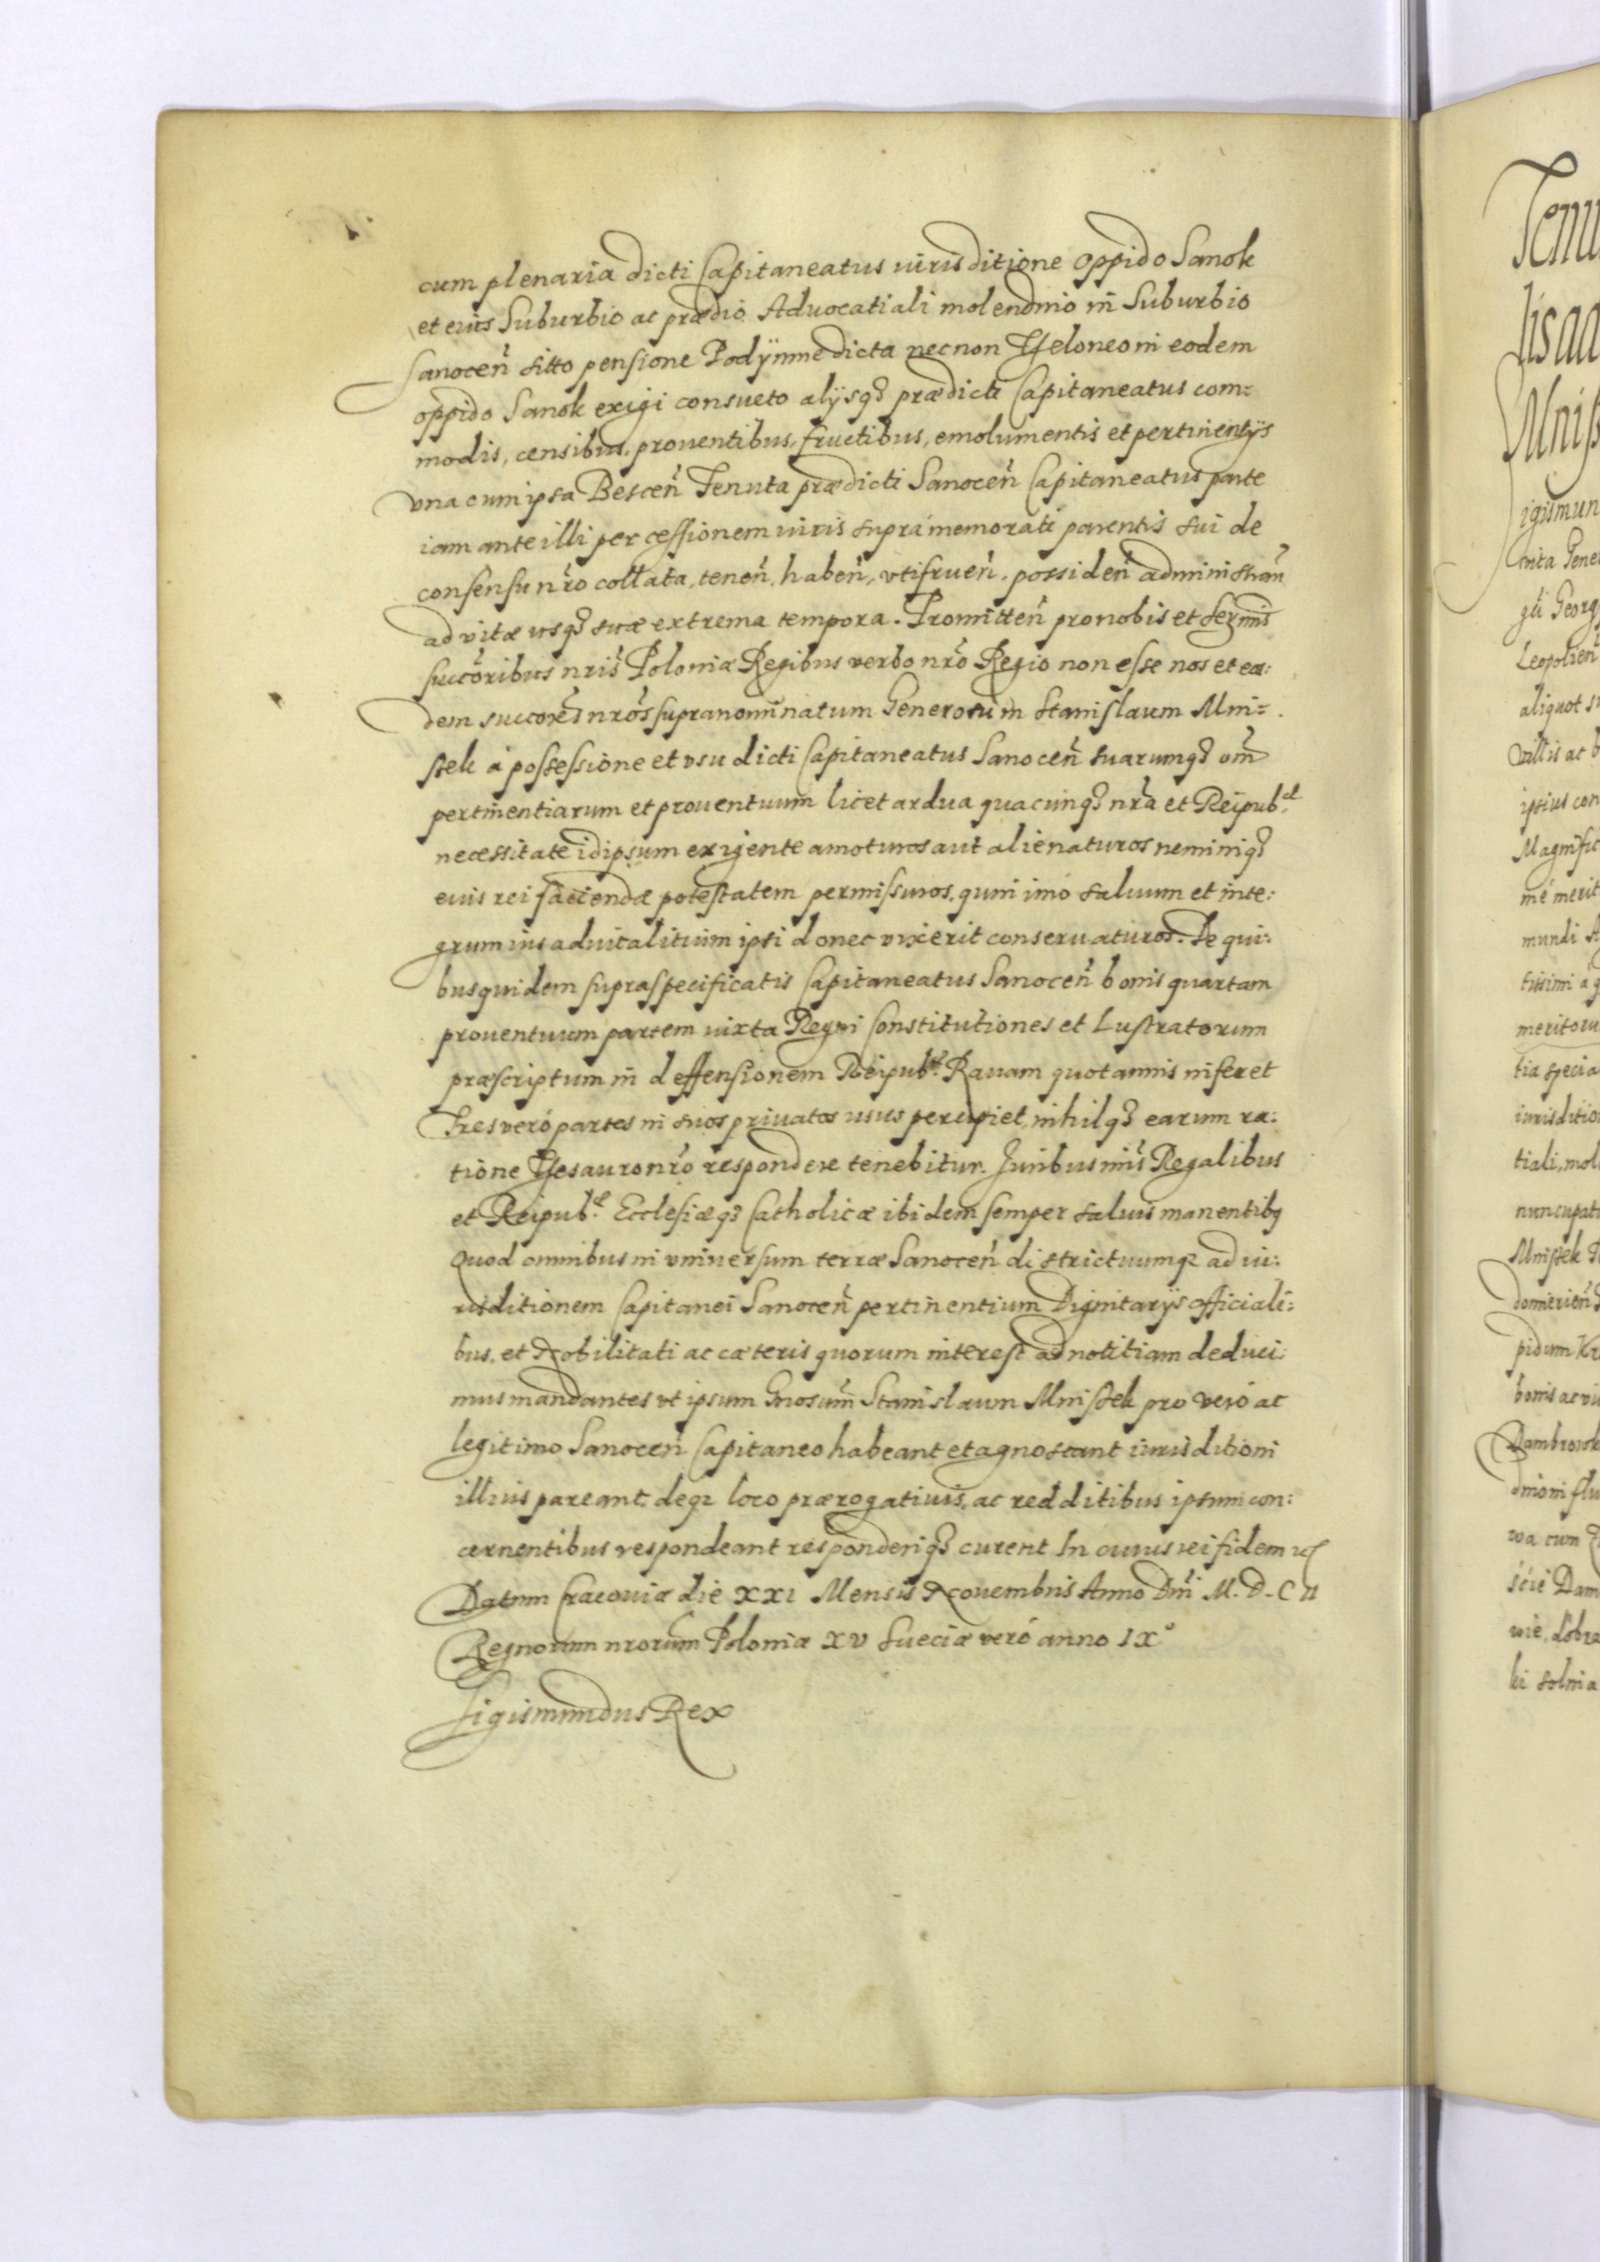 cum plenaria dicti Capitaneatus iurisditione oppido Sanok
et eius Suburbio ac prædio Advocatiali molendino in Suburbio
Sanocen̄ sitto pensione Podÿmne dicta necnon Theloneo in eodem
oppido Sanok exigi consueto alÿsqȝ prædicti Capitaneatus com=
modis, censibus, proventibus, fructibus, emolumentis et pertinentÿs
vna cum ipsa Bescen̄ Tenuta prædicti Sanocen̄ Capitaneatus parte
iam ante illi per cessionem iuris supra memorati parentis sui de
consensu nr̄o collata, tenen̄, haben̄, vtifruen̄, possiden̄ administran̄
ad vitæ usqȝ suæ extrema tempora. Promitten̄ pro nobis et Serm̄is
succōribus nr̄is Poloniæ Regibus verbo nr̄o Regio non esse nos et eos:
dem succores̄ nr̄os supranominatum Generosum Stanislaum Mni=
stek à possessione et vsu dicti Capitaneatus Sanocen̄ suarumqȝ om̄
pertinentiarum et proventuum licet ardua quacunqȝ nr̄a et Reipub.cæ
necessitate idipsum exigente amoturos aut alienaturos neminiqȝ
eius rei faciendæ potestatem permissuros, quin imò saluum et inte:
grum ius aduitalitium ipsi donec vixerit conseruaturos. De qui:
bus quidem supraspecificatis Capitaneatus Sanocen̄ bonis quartam
prouentuum partem iuxta Regni Constitutiones et Lustratorum
præscriptum in deffensionem Reipub.cæ Rauam quotannis inferet
Tres verò partes in suos priuatos usus percipiet, nihilqȝ earum ra:
tione Thesauro nr̄o respondere tenebitur. Iuribus nr̄is Regalibus
et Reipub.cæ Ecclesiæqȝ Catholicæ ibidem semper saluis manentibȝ
Quod omnibus in vniversum terræ Sanocen̄ districtuumqȝ ad iu:
risditionem Capitanei Sanocen̄ pertinentium Dignitarÿs officiali:
bus, et Nobilitati ac cæteris quorum interest ad notitiam deduci:
mus mandantes vt ipsum Gnosum̄ Stanislaum Mnistek pro vero ac
legitimo Sanocen̄ Capitaneo habeant et agnoscant iurisditioni
illius pareant, deqȝ loco prærogatiuis, ac redditibus ipsum con:
cernentibus respondeant responderiqȝ curent In cuius rei fidem
Datum Cracouiæ die XXI Mensis Nouembris Anno Dn̄i M. D. C II
Regnorum nrorum̄ Poloniæ XV Sueciæ verò anno IX°
Sigismundus Rex
Tenu
lis aa
Mnisz
igismun
nita Gene
gÿ Georg
Leopolien̄
aliquot s
villis ac b
ipsius con
Magnific
mè merit
mundi A
tissimi à
meritoru
tia specia
iurisditio
tiali, mol
nuncupat
Mnistek
domierien̄
pidum Kr
bonis ac vi
Dambrowk
dnioni flu
wa cum
ście Dam
wie, dobra
ki solnia